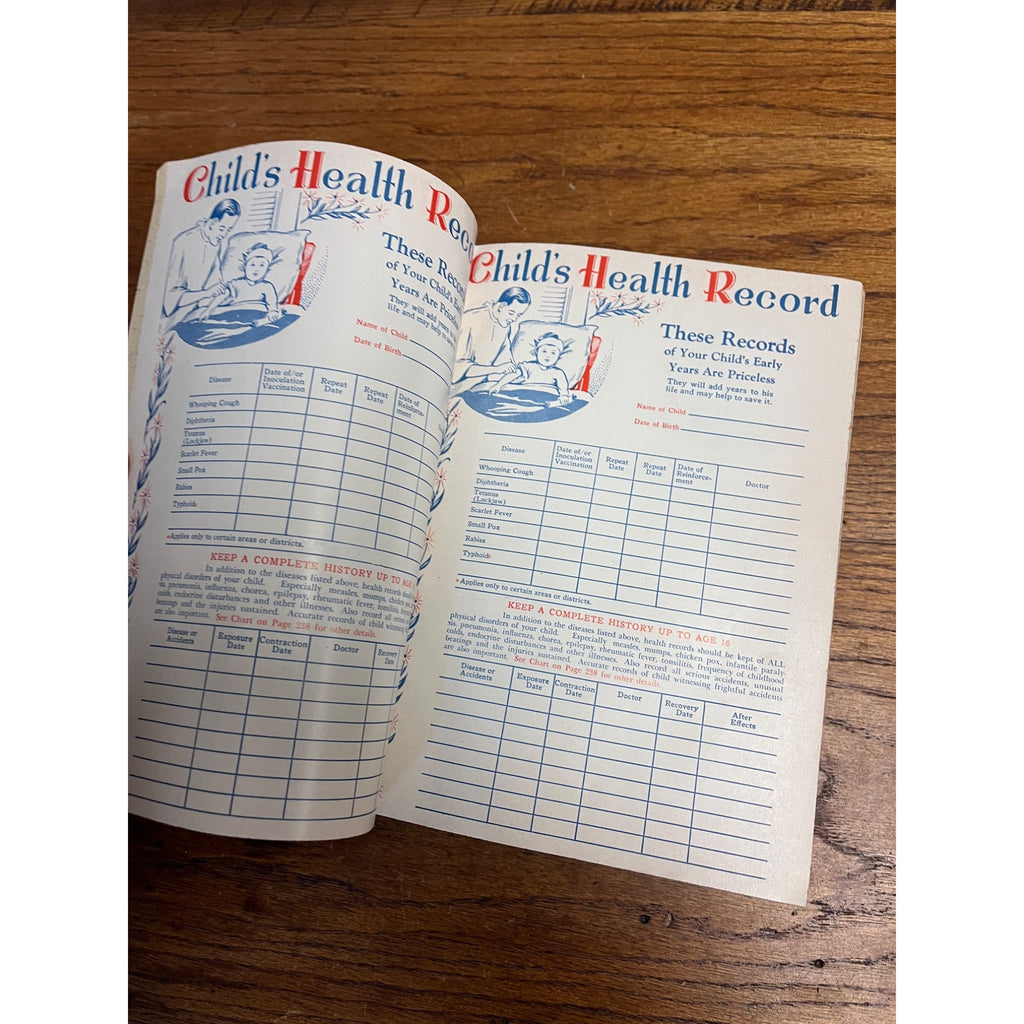 Child's Health Reco
These Recor
of Your Child's Early
Years Are Priceless
They will add years to
life and may help to s
Name of Child
Date of Birth
Disease
Date of/or
Inoculation
Vaccination
Repeat
Date
Repeat
Date
Date of
Reinforce-
ment
Whooping Cough
Diphtheria
Tetanus
(Lockjaw)
Scarlet Fever
Small Pox
Rabies
Typhoid*
*Applies only to certain areas or districts.
KEEP A COMPLETE HISTORY UP TO AGE
In addition to the diseases listed above, health records should
physical disorders of your child. Especially measles, mumps, chicken pox,
so, pneumonia, influenza, chorea, epilepsy, rheumatic fever, tonsilitis, frequen
colds, endocrine disturbances and other illnesses. Also record all serious
beatings and the injuries sustained. Accurate records of child witnessing
are also important. See Chart on Page 238 for other details.
Disease or
Accidents
Exposure
Date
Contraction
Date
Doctor
Recovery
Date
Child's Health Record
These Records
of Your Child's Early
Years Are Priceless
They will add years to his
life and may help to save it.
Name of Child
Date of Birth
Disease
Date of/or
Inoculation
Vaccination
Repeat
Date
Repeat
Date
Date of
Reinforce-
ment
Doctor
Whooping Cough
Diphtheria
Tetanus
(Lockjaw)
Scarlet Fever
Small Pox
Rabies
Typhoid*
*Applies only to certain areas or districts.
KEEP A COMPLETE HISTORY UP TO AGE 16
In addition to the diseases listed above, health records should be kept of ALL
physical disorders of your child. Especially measles, mumps, chicken pox, infantile paraly-
so, pneumonia, influenza, chorea, epilepsy, rheumatic fever, tonsilitis, frequency of childhood
colds, endocrine disturbances and other illnesses. Also record all serious accidents, unusual
beatings and the injuries sustained. Accurate records of child witnessing frightful accidents
are also important. See Chart on Page 238 for other details.
Disease or
Accidents
Exposure
Date
Contraction
Date
Doctor
Recovery
Date
After
Effects